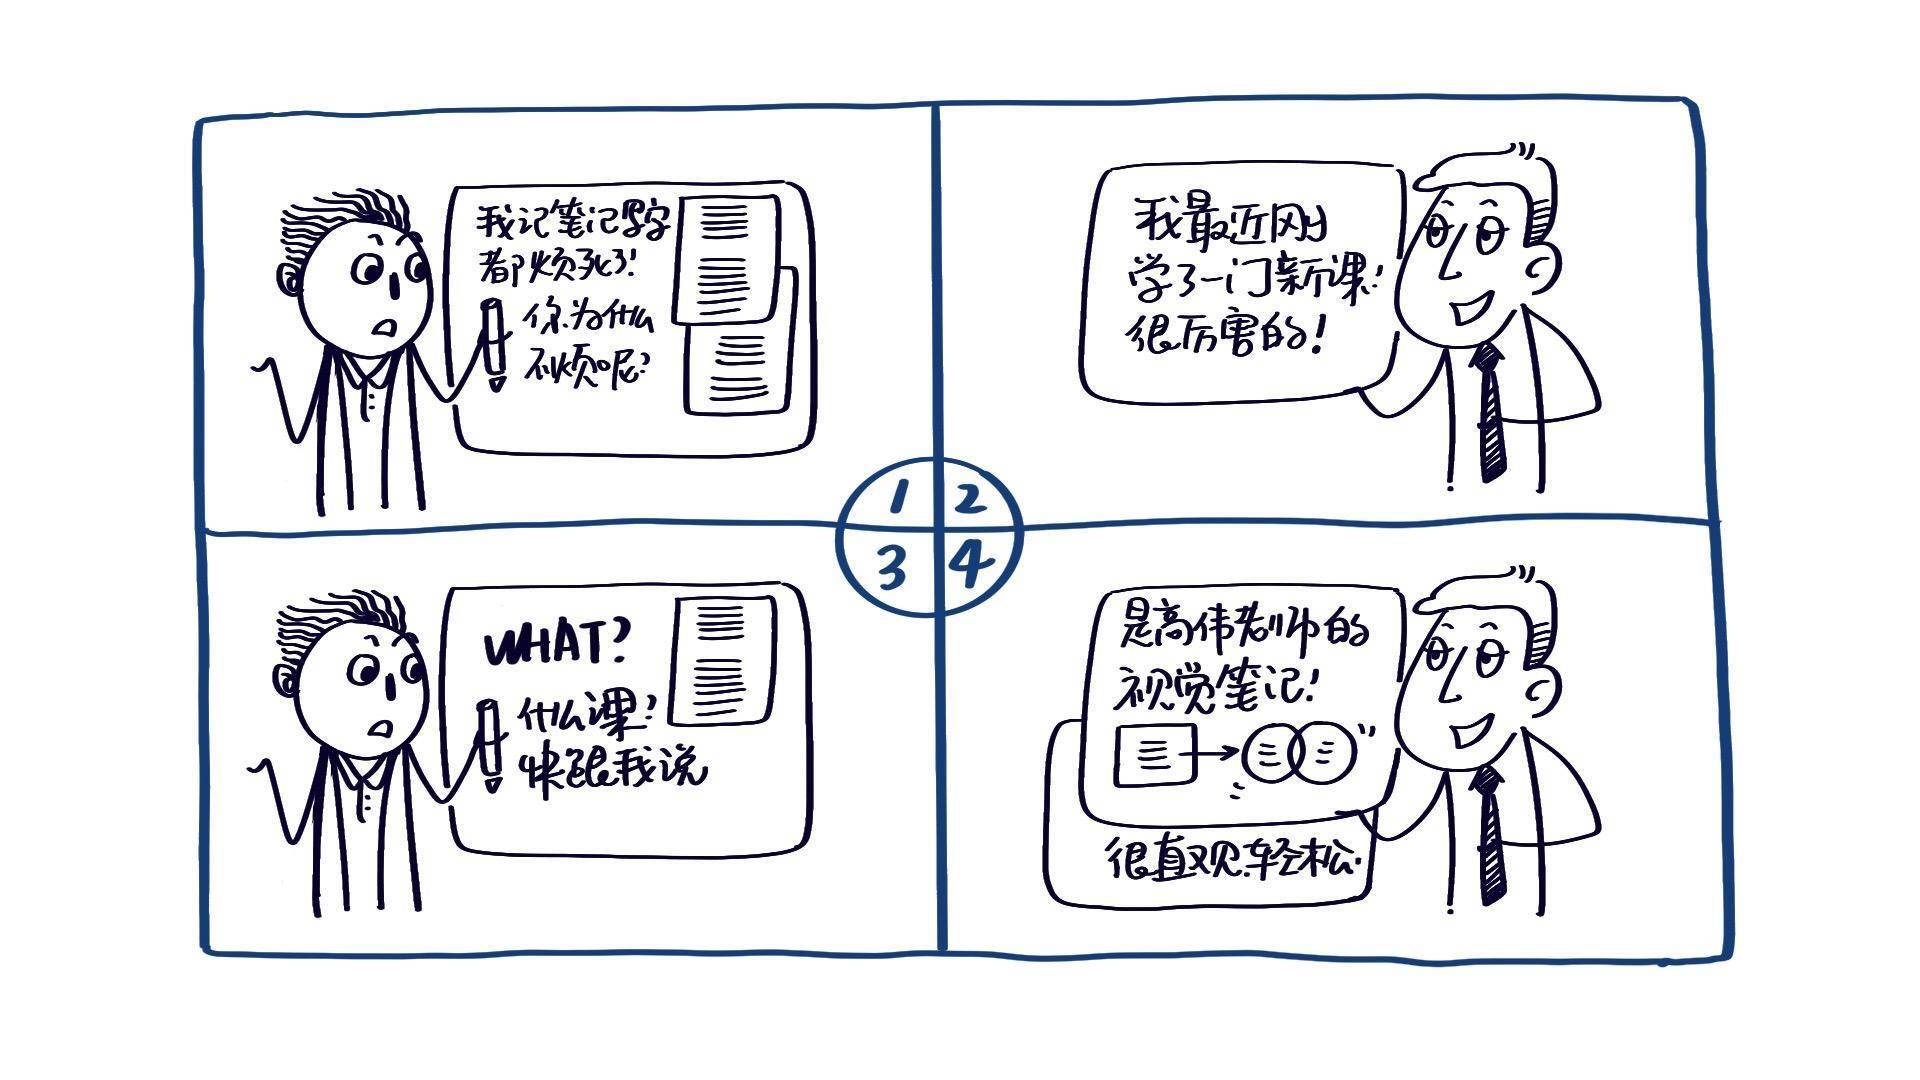 我记笔记写字
都烦死了!
你为什么
不烦呢?
我最近刚
学了一门新课!
很厉害的!
1
2
3
4
WHAT?
什么课?
快跟我说
是高伟老师的
视觉笔记!
很直观.轻松.